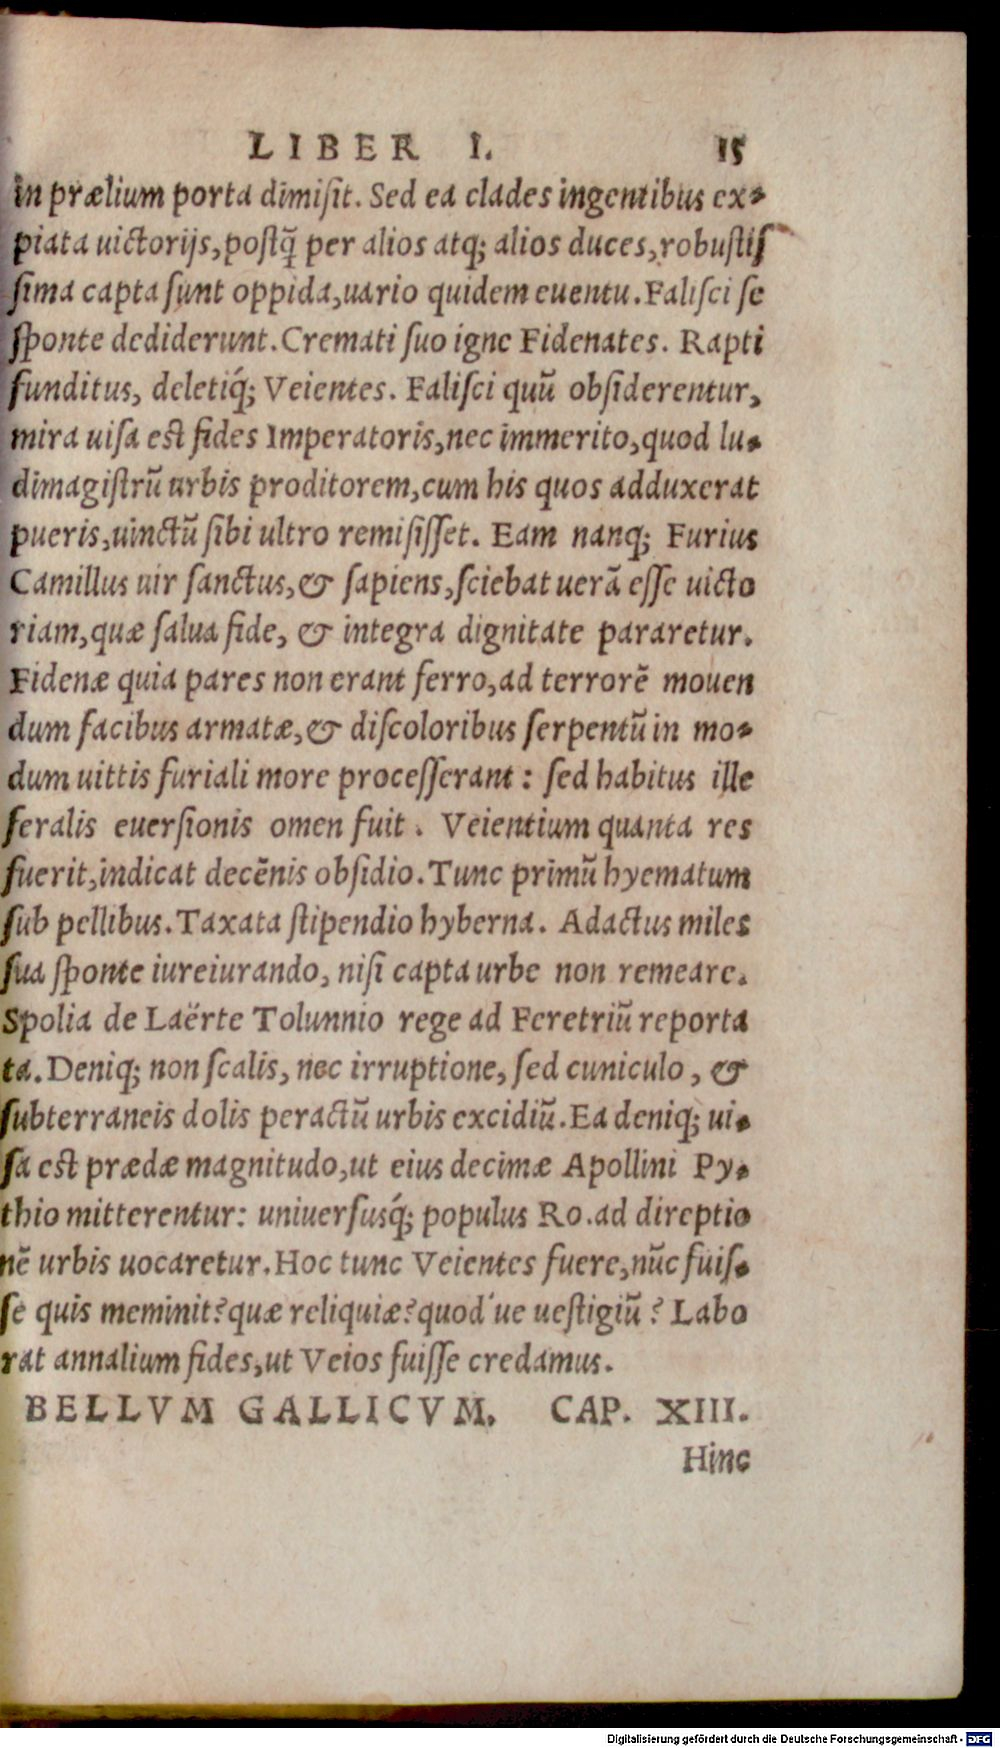 LIBER I. 15
in prælium porta dimiſit. Sed ea clades ingentibus ex-
piata uictorijs, poſtq̃ per alios atq; alios duces, robuſtiſ
ſima capta ſunt oppida, uario quidem euentu. Faliſci ſe
ſponte dediderunt. Cremati ſuo igne Fidenates. Rapti
funditus, deletiq́; Veientes. Faliſci quũ obſiderentur,
mira uiſa eſt fides Imperatoris, nec immerito, quod lu-
dimagiſtrũ urbis proditorem, cum his quos adduxerat
pueris, uinctũ ſibi ultro remiſiſſet. Eam nanq; Furius
Camillus uir ſanctus, & ſapiens, ſciebat uerã eſſe uicto
riam, quæ ſalua fide, & integra dignitate pararetur.
Fidenæ quia pares non erant ferro, ad terrorẽ mouen
dum facibus armatæ, & diſcoloribus ſerpentũ in mo-
dum uittis furiali more proceſſerant: ſed habitus ille
feralis euerſionis omen fuit. Veientium quanta res
fuerit, indicat decẽnis obſidio. Tunc primũ hyematum
ſub pellibus. Taxata ſtipendio hyberna. Adactus miles
ſua ſponte iureiurando, niſi capta urbe non remeare.
Spolia de Laërte Tolunnio rege ad Feretriũ reporta
ta. Deniq; non ſcalis, nec irruptione, ſed cuniculo, &
ſubterraneis dolis peractũ urbis excidiũ. Ea deniq; ui-
ſa eſt prædæ magnitudo, ut eius decimæ Apollini Py-
thio mitterentur: uniuerſusq́; populus Ro. ad direptio
nẽ urbis uocaretur. Hoc tunc Veientes fuere, nũc fuiſ-
ſe quis meminit? quæ reliquiæ? quod'ue ueſtigiũ? Labo
rat annalium fides, ut Veios fuiſſe credamus.
BELLVM GALLICVM. CAP. XIII.
Hinc
Digitalisierung gefördert durch die Deutsche Forschungsgemeinschaft - DFG